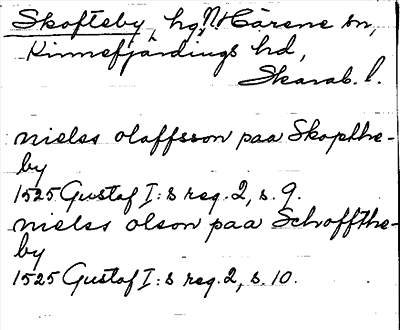 Skofteby, hg, N Härene sn,
Kinnefjärdings hd,
Skarab. l.
nieles olaffsson paa Skopthe-
by
1525 Gustaf I:s reg. 2, s. 9.
nieles olson paa Schoffthe-
by
1525 Gustaf I:s reg. 2, s. 10.